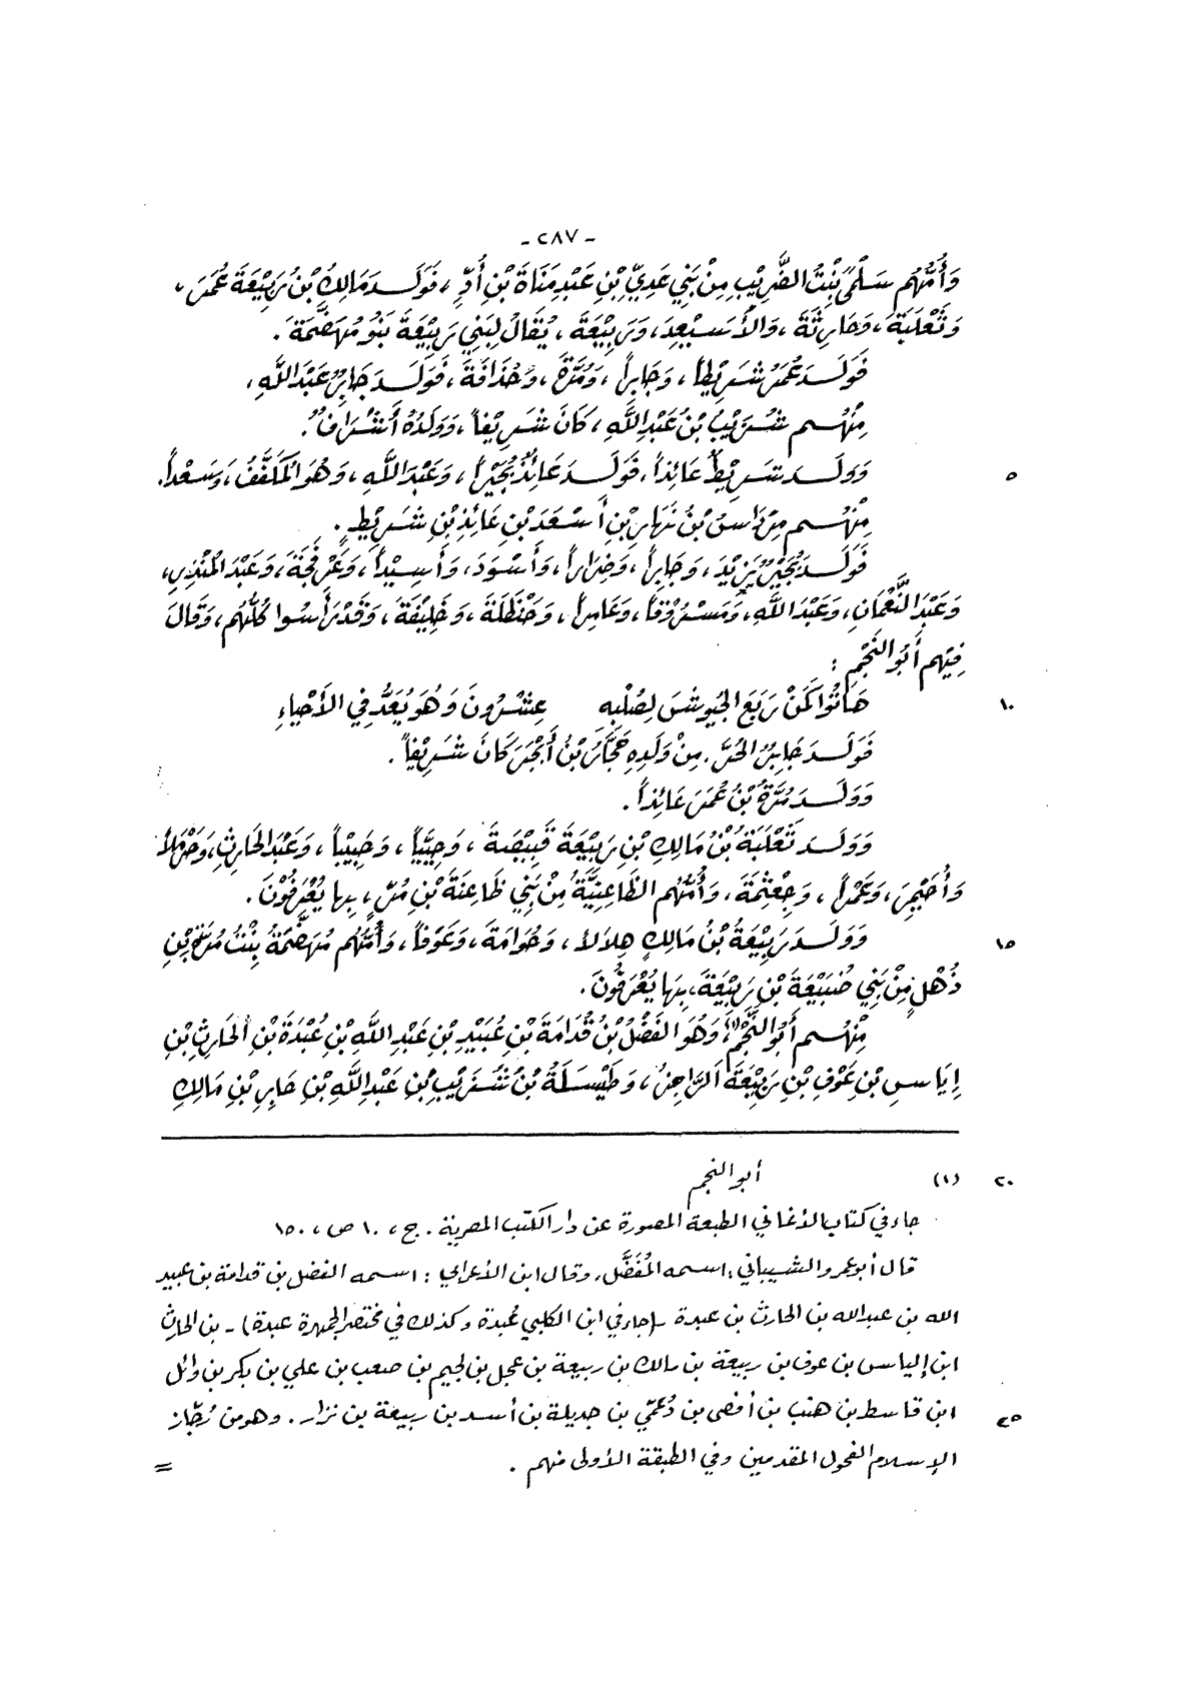 - ٢٨٧ -
وَأُمُّهُم سَلْمَى بِنْتُ الضَّرِيْبِ مِنْ بَنِي عَدِيِّ بْنِ عَبْدِ مَنَاةَ بْنِ أُدٍّ ، فَوَلَــدَ مَالِكُ بْنُ رَبِيْعَةَ عُمَرَ ،
وَثَعْلَبَةَ ، وَحَارِثَةَ ، وَالأَسْــعِدَ ، وَرَبِيْعَةَ ، يُقَالُ لِبَنِي رَبِيْعَةَ بَنُو مُهَضَّمَةَ .
فَوَلَــدَ عُمَرُ شَرِيْطاً ، وَجَابِراً ، وَمُرَّةَ ، وَحُذَافَةَ ، فَوَلَــدَ جَابِرٌ عَبْدَ اللَّهِ ،
مِنْهُــم شُرَيْبُ بْنُ عَبْدِ اللَّهِ ، كَانَ شَرِيْفاً ، وَوَلَدُهُ أَشْرَافٌ .
٥ وَوَلَــدَ شَرِيْطٌ عَائِذاً ، فَوَلَــدَ عَائِذٌ بُجَيْراً ، وَعَبْدَ اللَّهِ ، وَهُوَ المُكَفَّفُ ، وَسَعْداً .
مِنْهُــم مِرْدَاسُ بْنُ نَهَارِ بْنِ أَسْعَدَ بْنِ عَائِذِ بْنِ شَرِيْطٍ .
فَوَلَــدَ بُجَيْرٌ يَزِيْدَ ، وَجَابِراً ، وَضِرَاراً ، وَأَسْوَدَ ، وَأَسِيْداً ، وَعَرْفَجَةَ ، وَعَبْدَ المُنْذِرِ ،
وَعَبْدَ النُّعْمَانِ ، وَعَبْدَ اللَّهِ ، وَمَسْرُوْقاً ، وَعَامِراً ، وَحَنْظَلَةَ ، وَخَلِيْفَةَ ، وَقَدْ رَأَسُوا كُلُّهُم ، وَقَالَ
فِيْهِم أَبُو النَّجْمِ :
١٠ هَاتُوا كَمَنْ رَبَعَ الجُيُوشَ لِصُلْبِهِ عِشْرُونَ وَهُوَ يُعَدُّ فِي الأَحْيَاءِ
فَوَلَــدَ جَابِرٌ الحُرَّ . مِنْ وَلَدِهِ حَجَّارُ بْنُ أَبْجَرَ كَانَ شَرِيْفاً .
وَوَلَــدَ مُرَّةُ بْنُ عُمَرَ عَائِذاً .
وَوَلَــدَ ثَعْلَبَةُ بْنُ مَالِكِ بْنِ رَبِيْعَةَ قَبِيْصَةَ ، وَحُيَيّاً ، وَحَبِيْباً ، وَعَبْدَ الحَارِثِ ، وَحَرْمَلاً
وَأُحَيْمِرَ ، وَعَمْراً ، وَجِعْثِمَةَ ، وَأُمُّهُم الظَّاعِنِيَّةُ مِنْ بَنِي ظَاعِنَةَ بْنِ مُرٍّ ، بِها يُعْرَفُوْنَ .
١٥ وَوَلَــدَ رَبِيْعَةُ بْنُ مَالِكٍ هِلاَلاً ، وَحُوَامَةَ ، وَعَوْفاً ، وَأُمُّهُم مُهَضَّمَةُ بِنْتُ بْنِ
ذُهْلٍ مِنْ بَنِي ضُبَيْعَةَ بْنِ رَبِيْعَةَ ، بِهَا يُعْرَفُوْنَ .
مِنْهُــم أَبُو النَّجْمِ(١) ، وَهُوَ الفَضْلُ بْنُ قُدَامَةَ بْنِ عُبَيْدِ بْنِ عَبْدِ اللَّهِ بْنِ عُبْدَةَ بْنِ الحَارِثِ بْنِ
إِيَاسِ بْنِ عَوْفِ بْنِ رَبِيْعَةَ الرَّاجِزُ ، وَطَيْسَلَةُ بْنُ شُرَيْبِ بْنِ عَبْدِ اللَّهِ بْنِ جَابِرِ بْنِ مَالِكِ
٢٠ (١) أبو النجم
جاء في كتاب الأغاني الطبعة المصورة عن دار الكتب المصرية . ج ، ١٠ ص ، ١٥٠
قال أبو عمرو الشيباني : اسمه المُفَضَّل ، وقال ابن الأعرابي : اسمه الفضل بن قدامة بن عبيد
الله بن عبدالله بن الحارث بن عبدة - (جاء في ابن الكلبي عُبدة وكذلك في مختصر الجمهرة عبدة) - بن الحارث
ابن إلياس بن عوف بن ربيعة بن مالك بن ربيعة بن عجل بن لجيم بن صعب بن علي بن بكر بن وائل
٢٥ ابن قاسط بن هنب بن أفصى بن دُعْمِّي بن جديلة بن أسد بن ربيعة بن نزار . وهو من رُجّاز
الإسلام الفحول المقدمين وفي الطبقة الأولى منهم . =